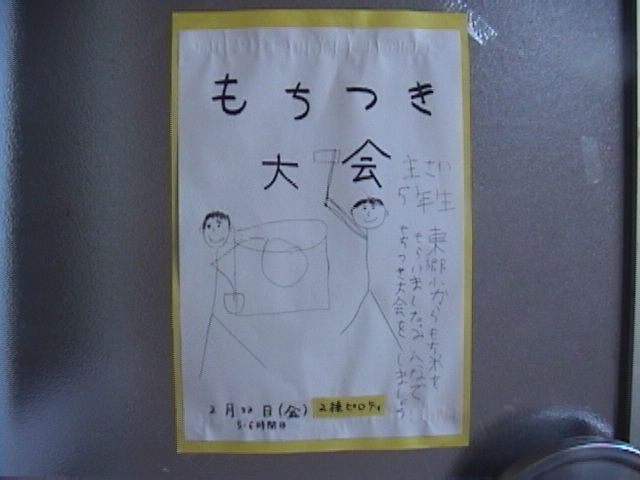 もちつき
大会
主さい
5年生
東郷小からもち米を
もらいました。みんなで
もちつき大会をしましょう
2月22日(金) 2棟ピロティ
5・6時間目